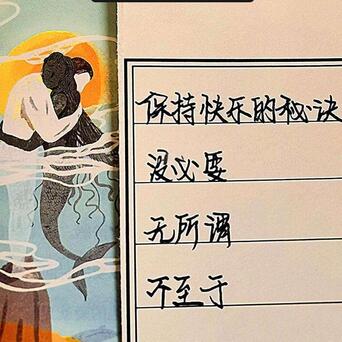 保持快乐的秘诀
没必要
无所谓
不至于